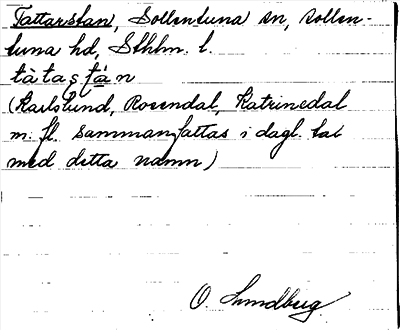 Tattarstan, Sollentuna sn, Sollen-
tuna hd, Sthlm. l.
tàtaṣtá n
(Karlslund, Rosendal, Katrinedal
m. fl. sammanfattas i dagl. tal
med detta namn)
O. Lundberg.